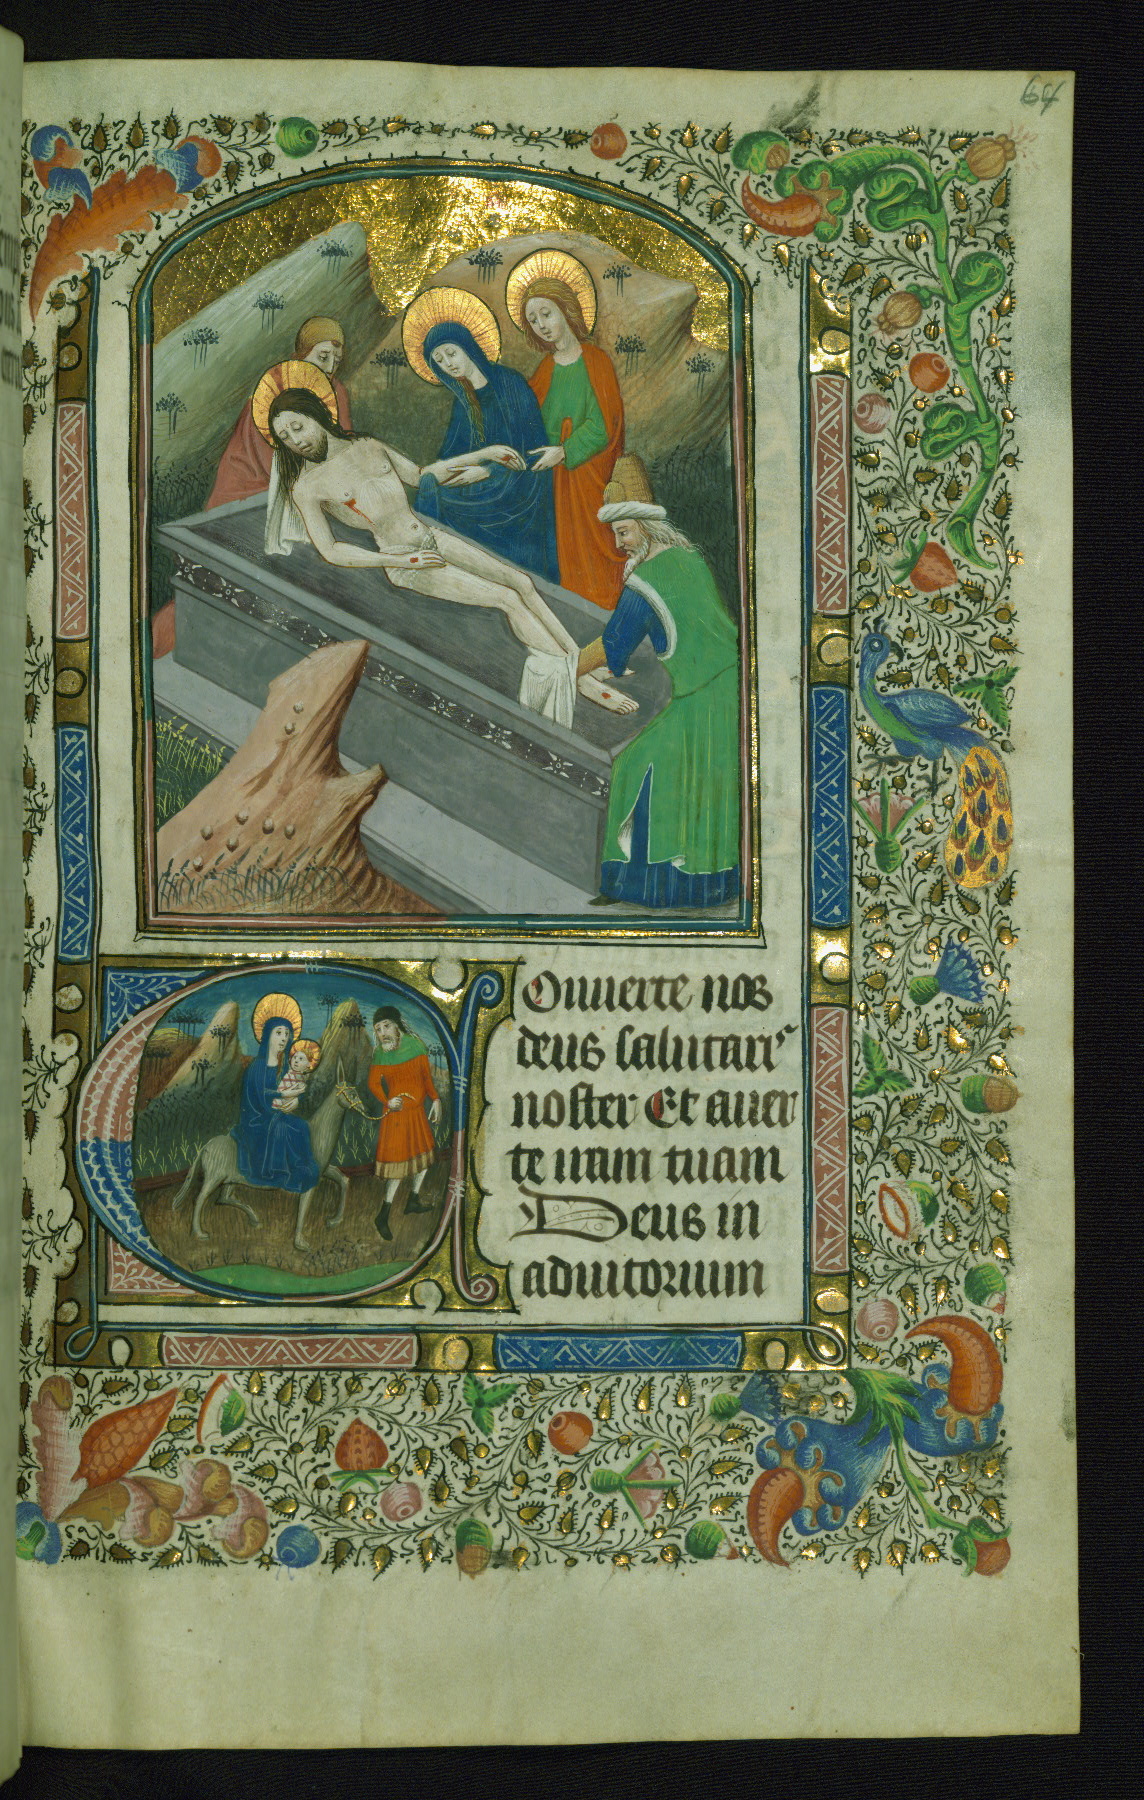 64
Onuerte nos
deus salutaris
noster Et auer
te iram tuam
Deus in
adiutorium